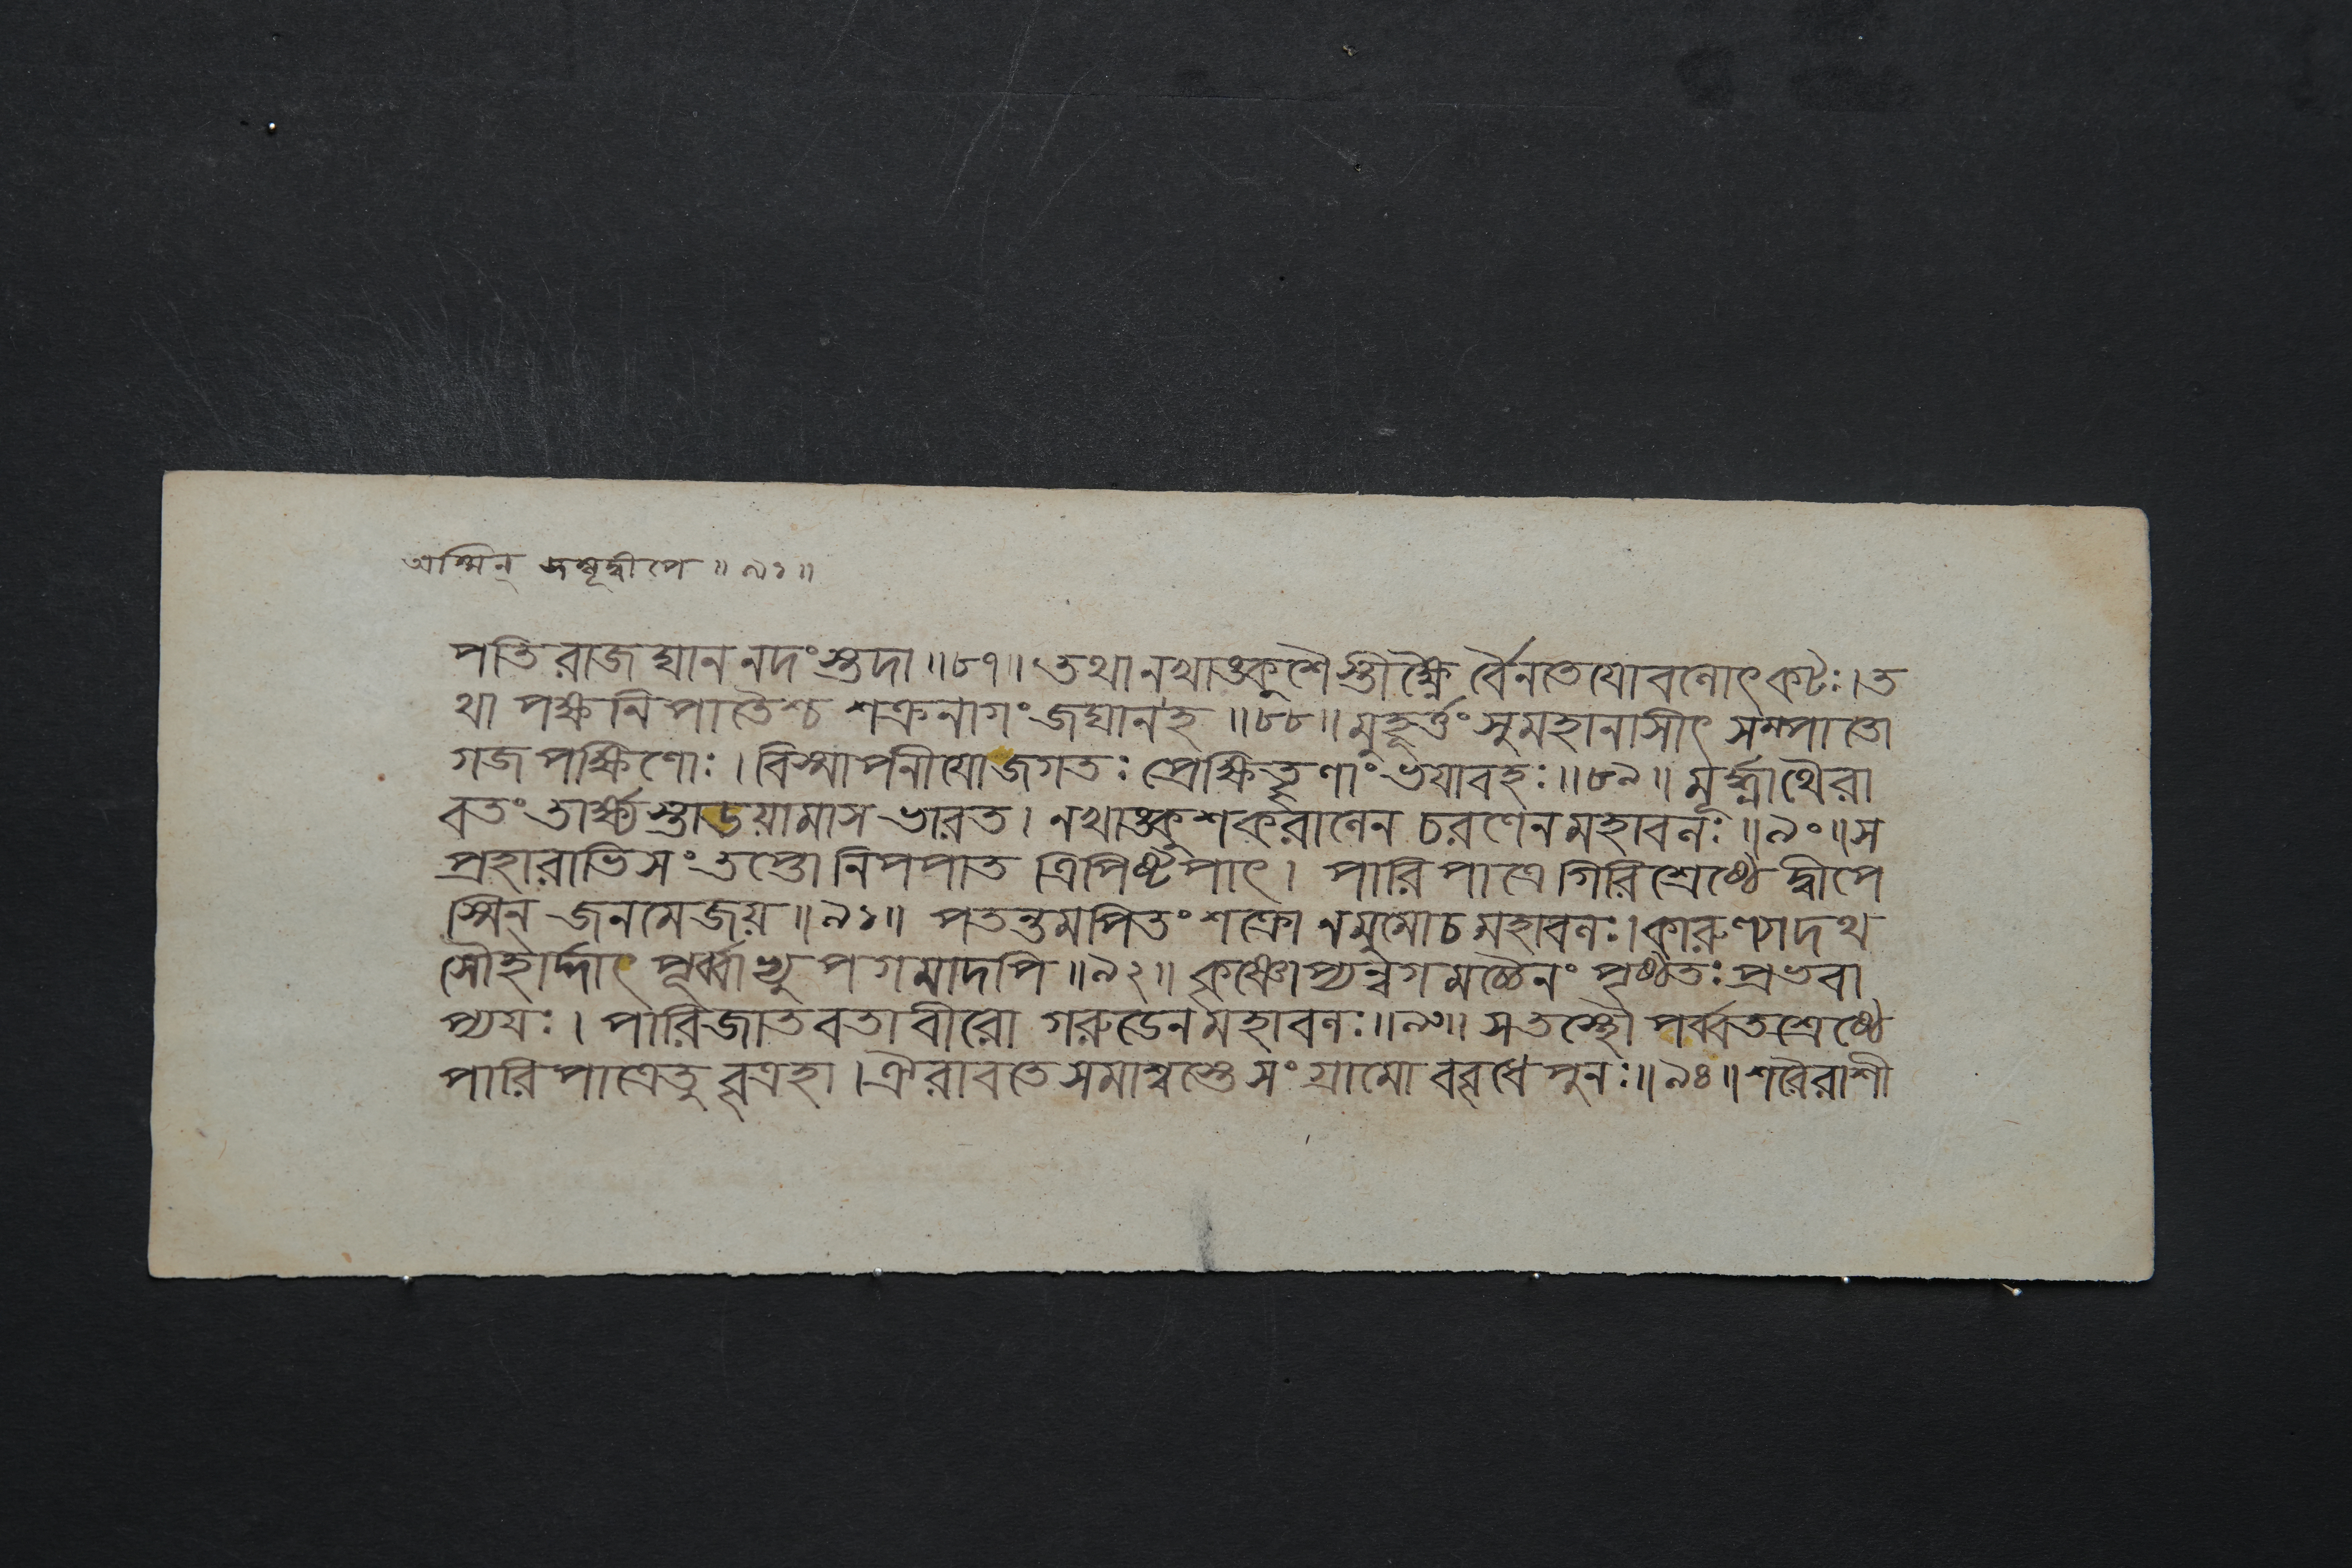 অস্মিন্ জম্বূদ্বীপে ॥ ৯১ ॥
পতিরাজঘাননদংস্তুদা ॥৮৭॥ তথানখাঙ্কুশৈস্তীক্ষ্ণৈর্বৈনতেযোবলোৎকটঃ।ত
থা পক্ষনিপাতৈশ্চ শক্রনাগং জঘানহ ॥৮৮॥ মুহূর্ত্তং সুমহানাসীৎ সম্পাতো
গজপক্ষিণোঃ। বিস্মাপনীযোজগতঃ প্রেক্ষিতৄণাং ভযাবহঃ ॥৮৯॥ মূর্দ্ধ্নাথৈরা
বতং তার্ক্ষ্যস্তাডয়ামাস ভারত। নখাঙ্কুশকরালেন চরণেনমহাবলঃ ॥৯০॥ স
প্রহারাভিসংতপ্তো নিপপাত ত্রিপিষ্টপাৎ। পারিপাত্রে গিরিশ্রেষ্ঠে দ্বীপে
স্মিন্ জনমেজয় ॥৯১॥ পতন্তমপিতং শক্রো নমুমোচমহাবলঃ।কারুণ্যাদথ
সৌহার্দ্দাৎ পূর্ব্বাভ্যুপগমাদপি ॥৯২॥ কৃষ্ণোপ্যন্বগমচ্চৈনং পৃষ্ঠতঃ প্রভবা
প্যযঃ। পারিজাতবতা বীরো গরুডেনমহাবলঃ ॥৯৩॥ সতস্থৌ পর্ব্বতশ্রেষ্ঠে
পারিপাত্রেতু বৃত্রহা। ঐরাবতে সমাশ্বস্তে সংগ্রামো ববৃধে পুনঃ ॥৯৪॥ শরৈরাশী